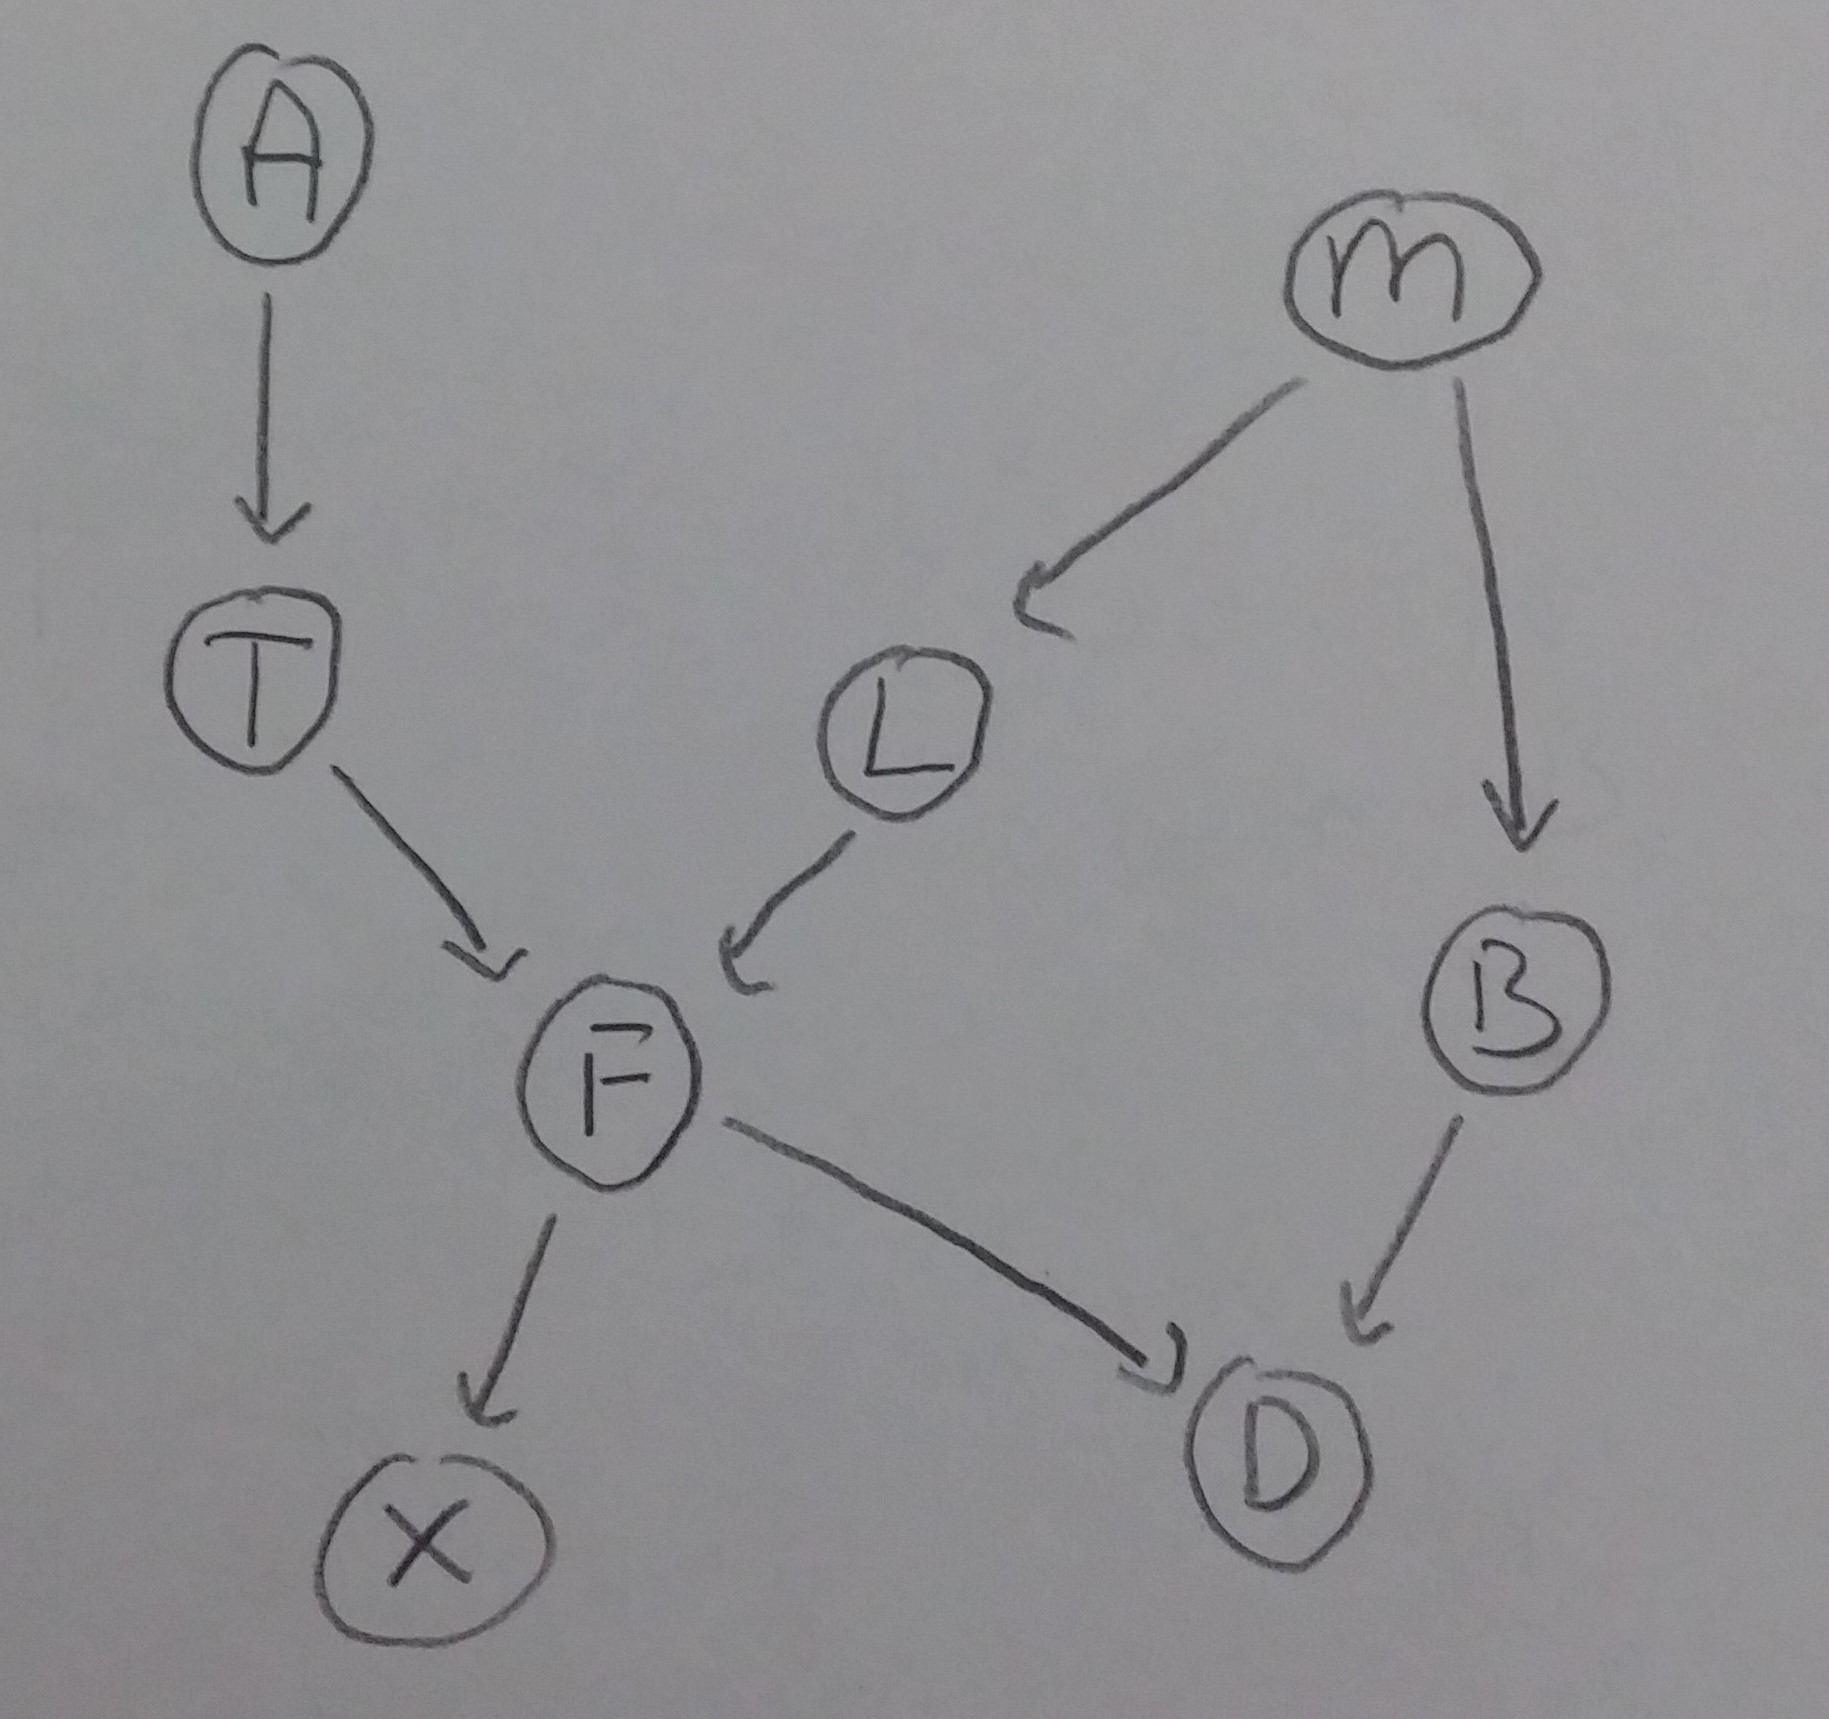 A
m
T
L
B
F
D
X